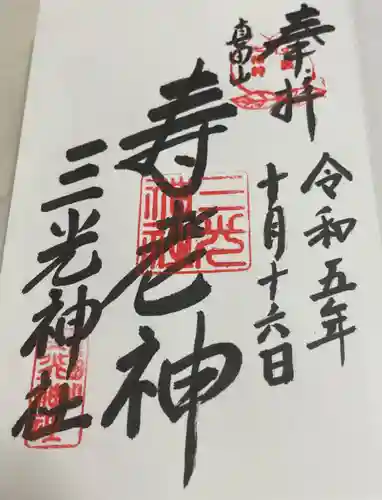 奉拝
真田山
令和五年
十月十六日
寿老神
三光神社
三光
神社